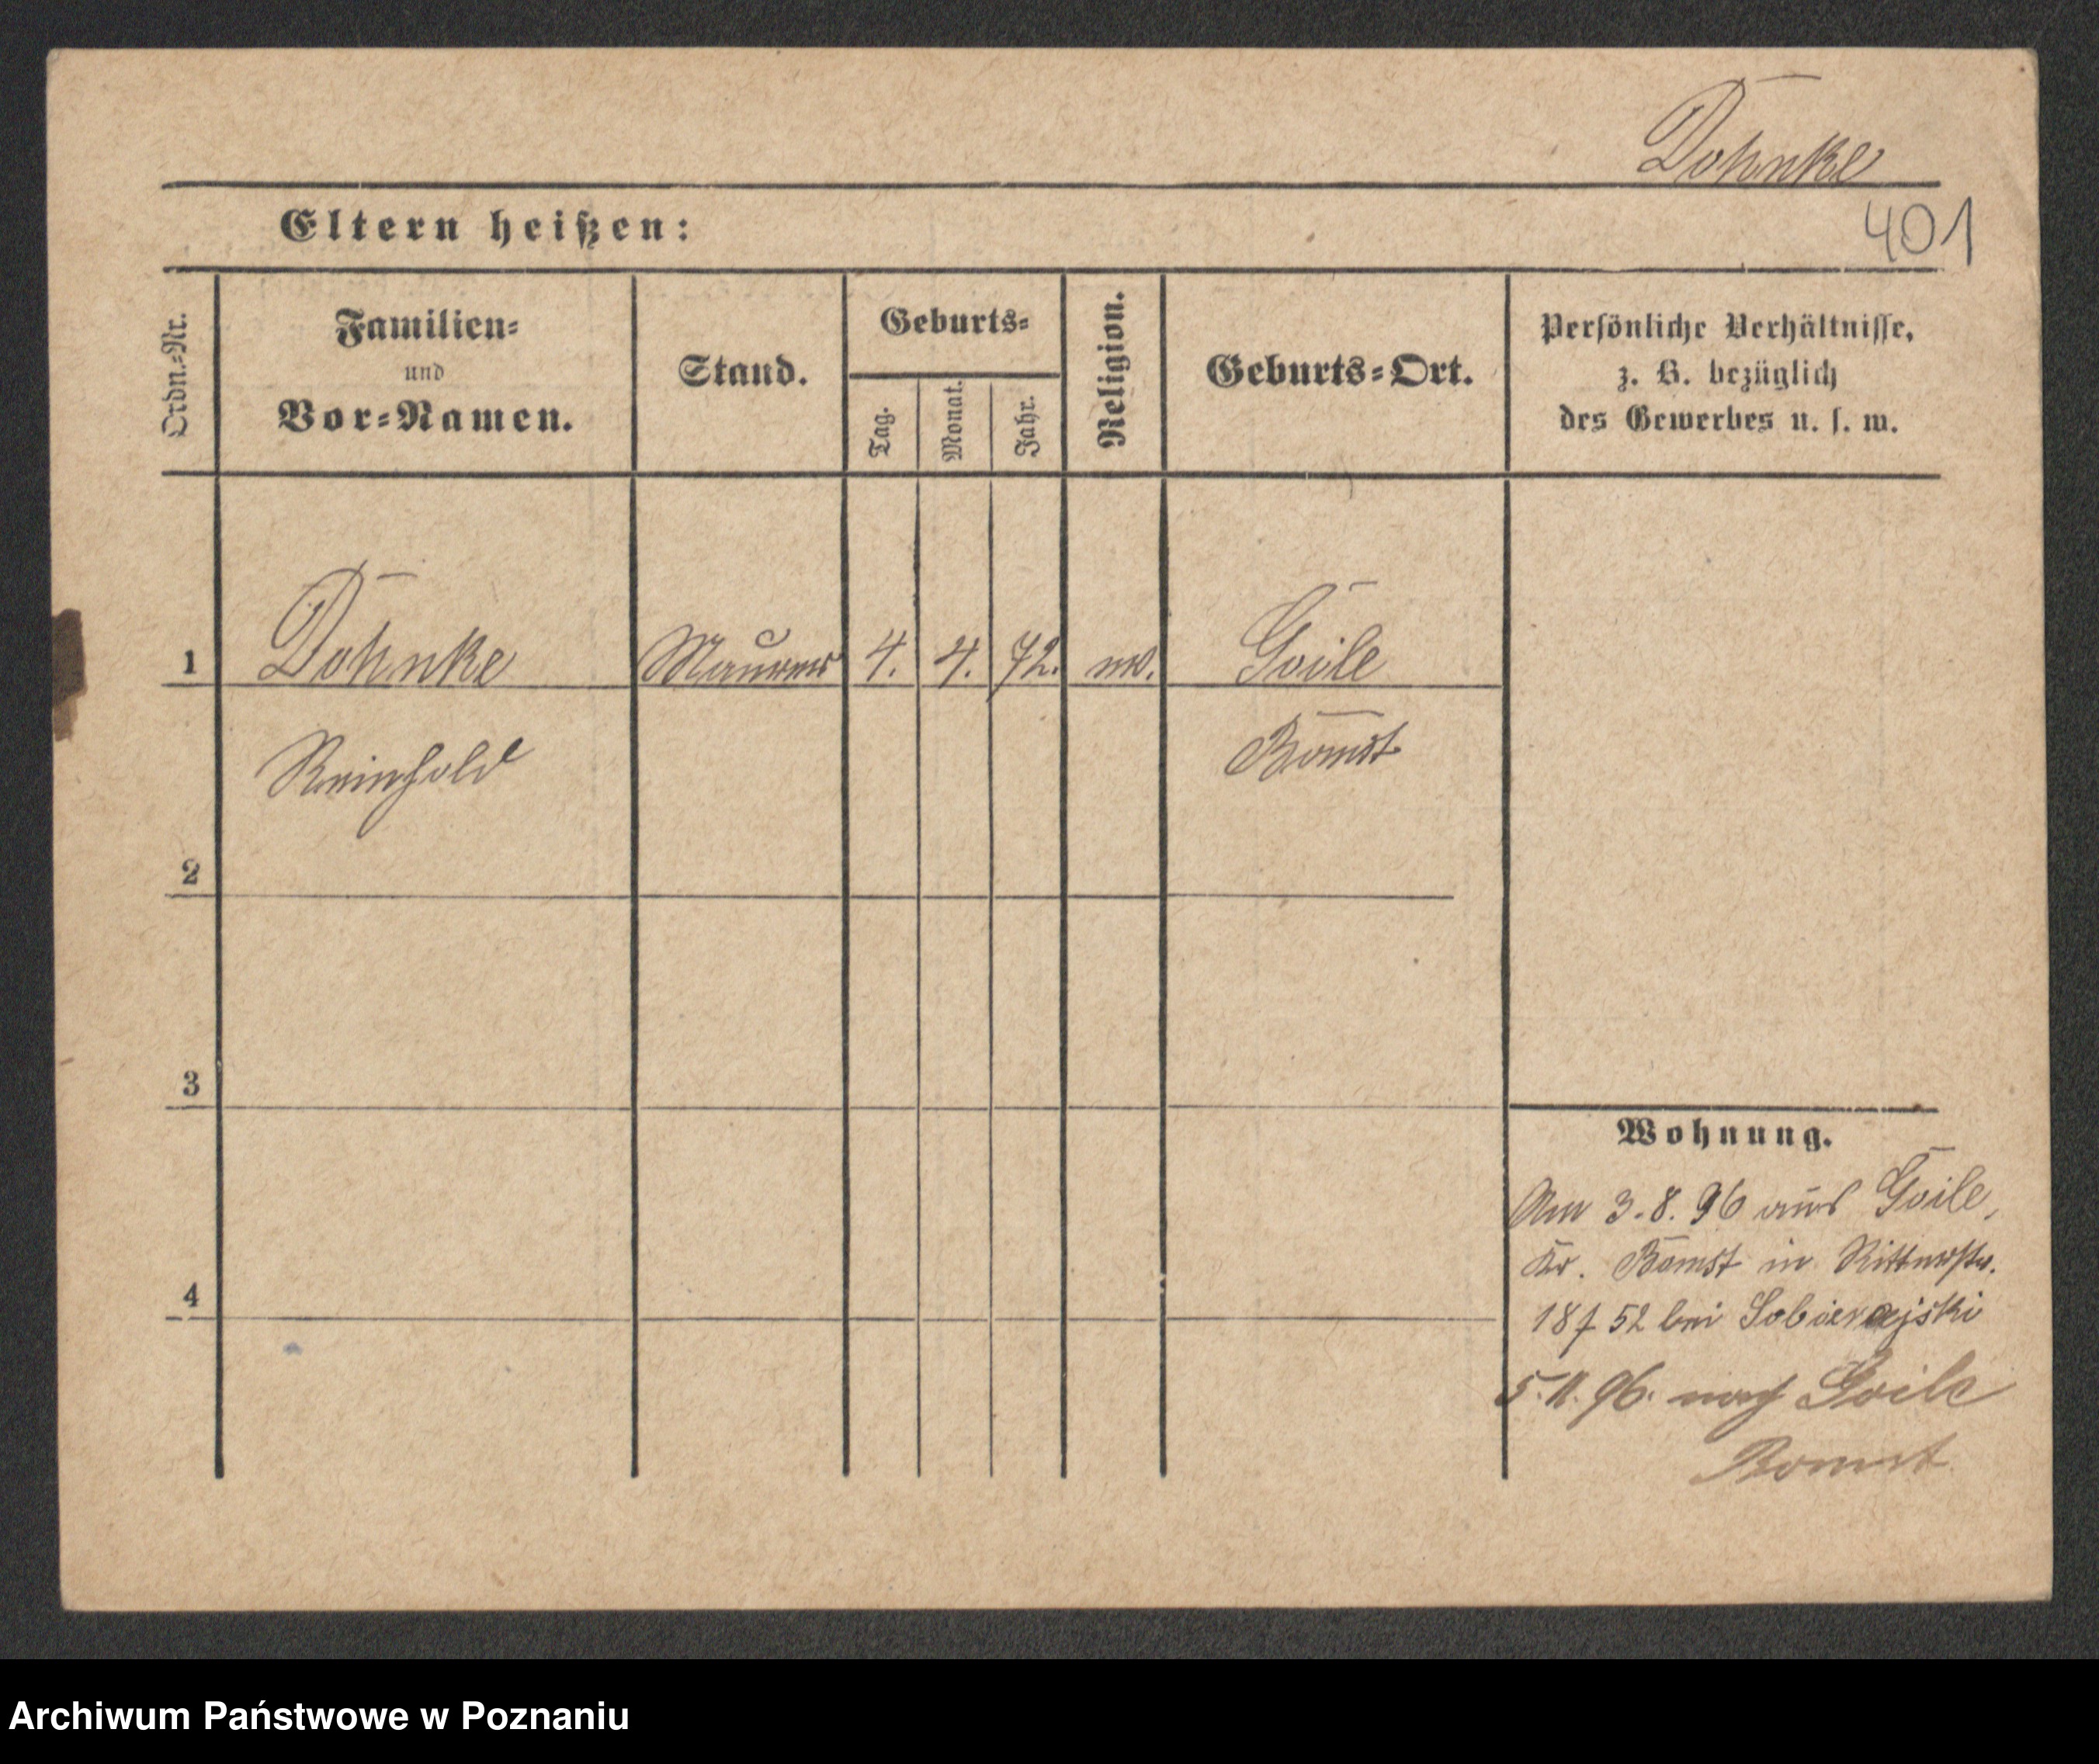 Dohnke
401
Eltern heißen:
Ordn.-Nr.
Familien-
und
Vor-Namen.
Stand.
Geburts-
Tag.
Monat.
Jahr.
Religion.
Geburts-Ort.
Persönliche Verhältnisse,
z. B. bezüglich
des Gewerbes u. s. w.
1 Dohnke Maurer 4. 4. 72. ev. Goile
Reinhold Bomst
2
3
4
Wohnung.
Am 3.8.96 aus Goile,
Kr. Bomst in Ritterstr.
bei
5.11.96. nach Goile
Bomst
Archiwum Państwowe w Poznaniu